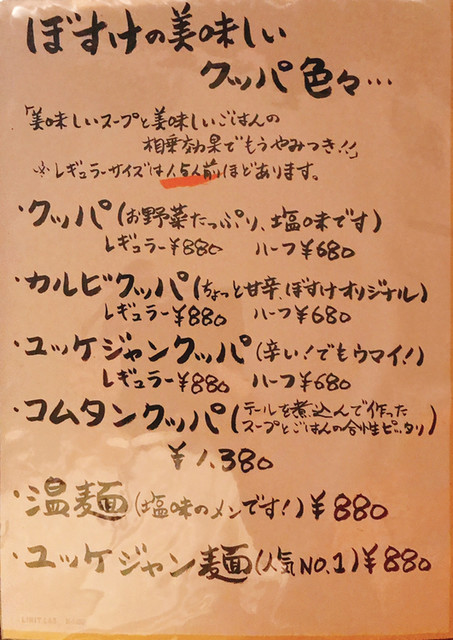 ぼすけの美味しい
クッパ色々…
「美味しいスープと美味しいごはんの
相乗効果でもうやみつき!!」
※レギュラーサイズは1.5人前ほどあります。
・クッパ(お野菜たっぷり、塩味です)
レギュラー¥880 ハーフ¥680
・カルビクッパ(ちょっと甘辛、ぼすけオリジナル)
レギュラー¥880 ハーフ¥680
・ユッケジャンクッパ(辛い!でもウマイ!)
レギュラー¥880 ハーフ¥680
・コムタンクッパ(テールを煮込んで作った
スープとごはんの合性ピッタリ)
¥1,380
・温麺(塩味のメンです!)¥880
・ユッケジャン麺(人気NO.1)¥880